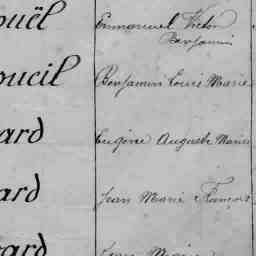 ouël Emmanuel Victor
Benjamin
oucil Benjamin Louis Marie
ard Eugène Auguste Marie
ard Jean Marie François
ard Jean Marie